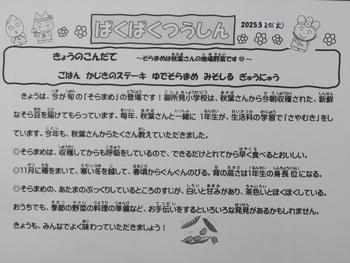 ぱくぱくつうしん
2025.5.20(火)
きょうのこんだて ～そらまめは秋葉さんの地場野菜です～
ごはん かじきのステーキ ゆでそらまめ みそしる ぎゅうにゅう
きょうは、今が旬の「そらまめ」の登場です！御所見小学校は、秋葉さんから今朝収穫された、新鮮
なそら豆を届けてもらっています。毎年、秋葉さんと一緒に 1年生が、生活科の学習で「さやむき」をし
ています。今年も、秋葉さんからたくさん教えていただきました。
◎そらまめは、収穫してからも呼吸をしているので、できるだけとれてから早く食べるとおいしい。
◎11月に種をまいて、寒い冬を越して、春頃からぐんぐんのびる。背の高さは1年生の身長位になる。
◎そらまめの、あたまのぷっくりしているところのすじが、白いと甘みがあり、茶色いとほくほくしている。
おうちでも、季節の野菜の料理の準備など、お手伝いをするといろいろな発見があるかもしれません。
きょうも、みんなでよく味わっていただきましょう！